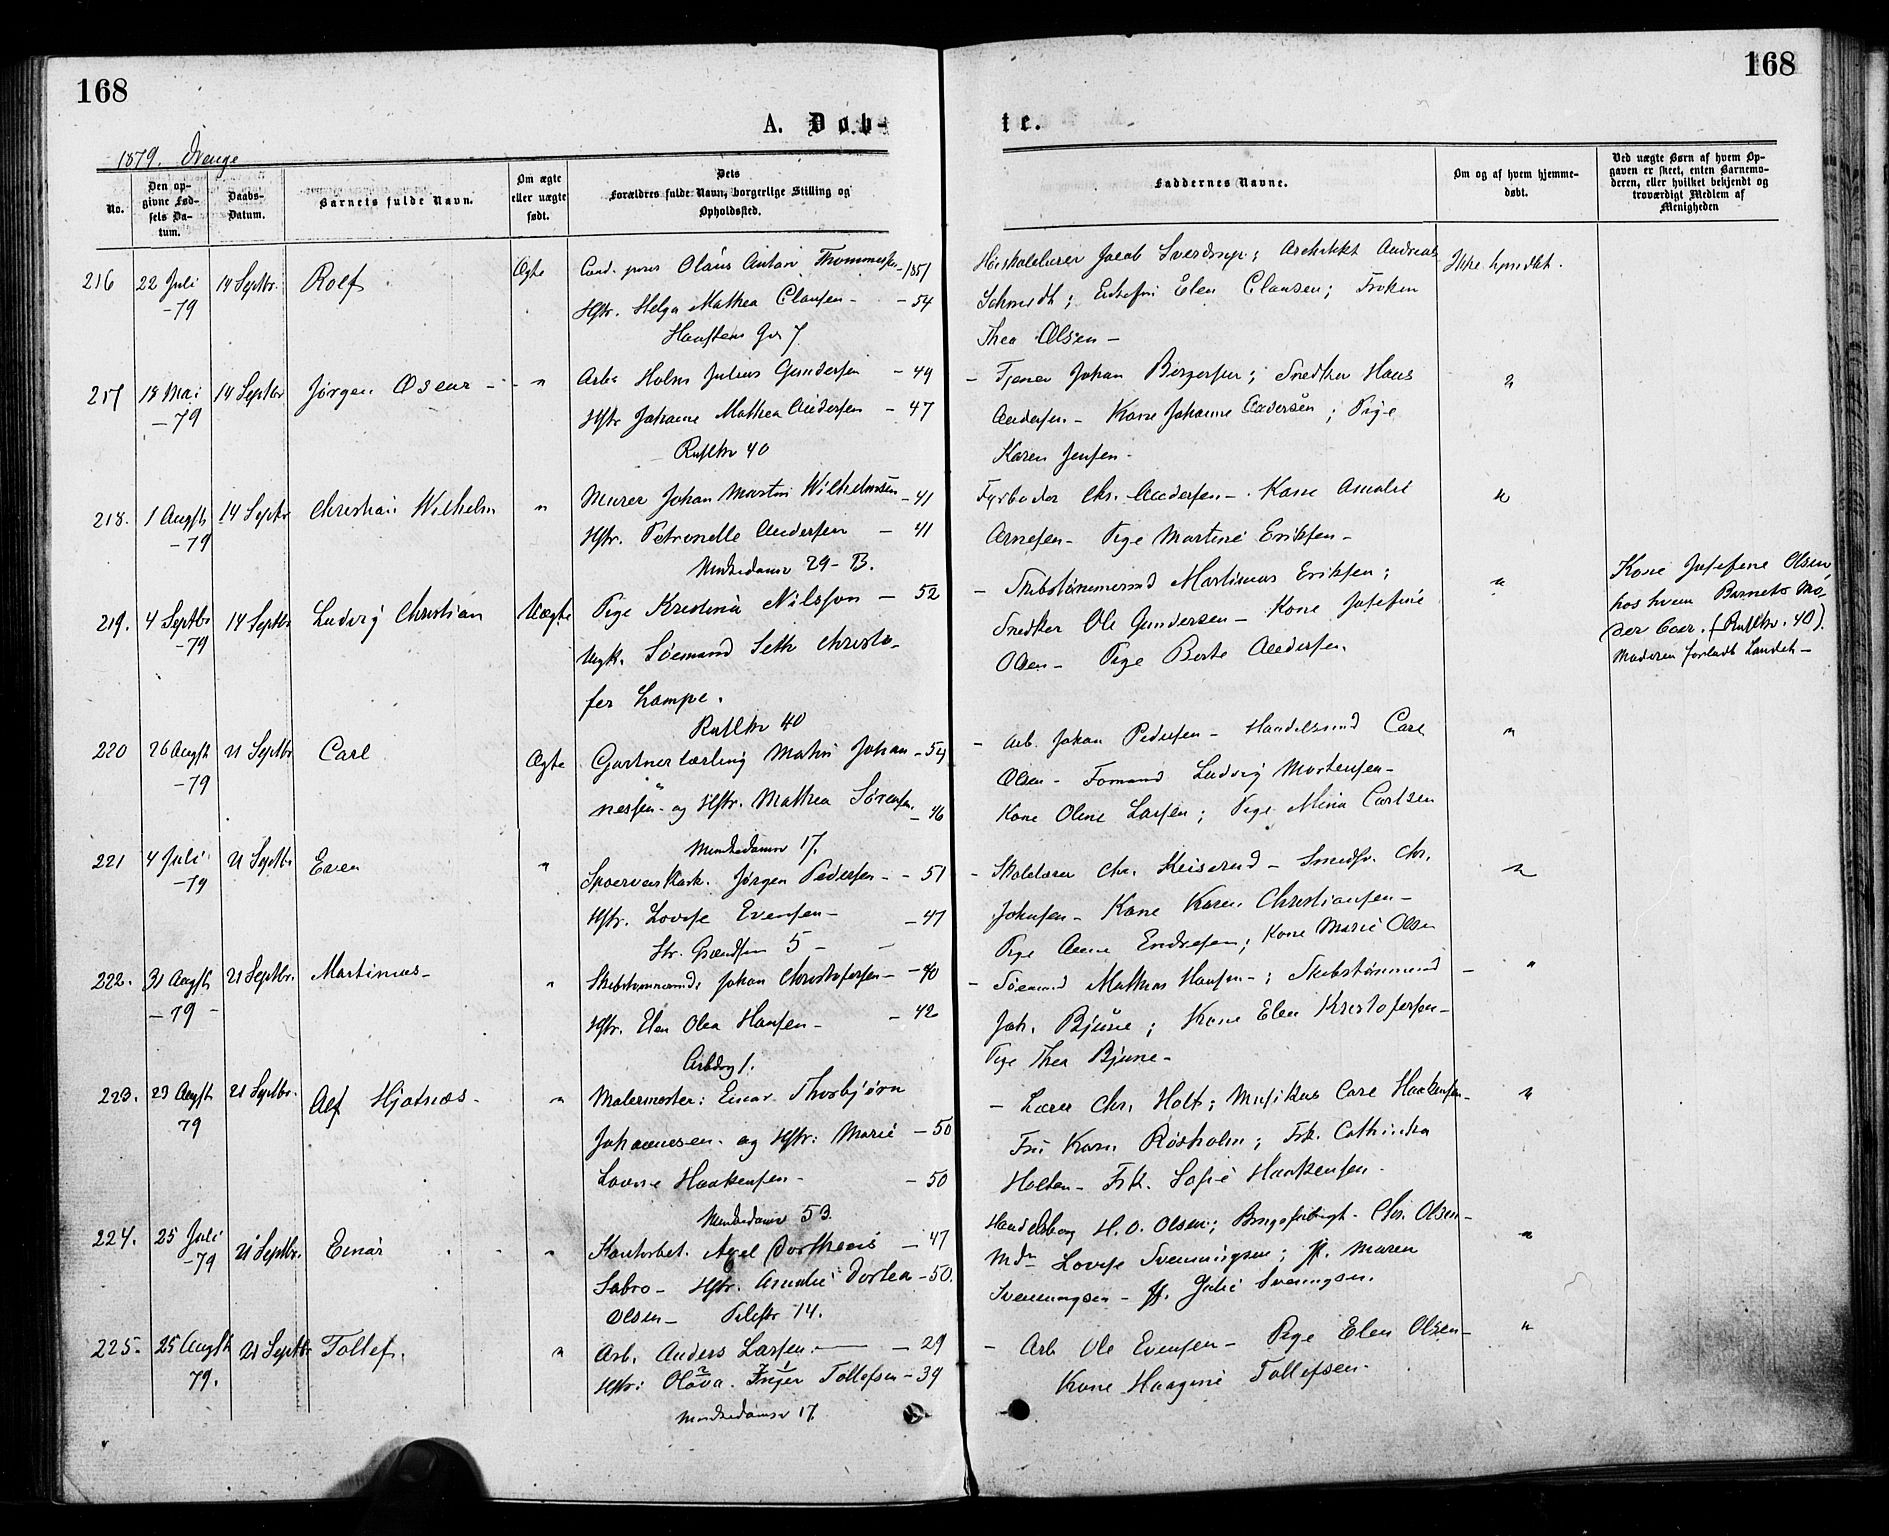 168
168
A. Døb-
te.
1879. Drenge
No.
Den op-
givne Fød-
sels Da-
tum.
Daabs-
Datum.
Barnets fulde Navn.
Om ægte
eller uægte
født.
Dets
Forældres fulde Navn, borgerlige Stilling og
Opholdssted.
Faddernes Navne.
Om og af hvem hjemme-
døbt.
Ved uægte Børn af hvem Op-
gaven er skeet, enten Barnemo-
deren, eller hvilket bekjendt og
troværdigt Medlem af
Menigheden
216 22 Juli 14 Septbr. Rolf Ægte Cand. Olaus Anton Thommesen -1851
-79
Hstr. Helga Mathea Clausen - - 54
7
Jacob Sverdrup; Architekt Andreas
Schmidt; Elen Clausen; Frøken
Thea Olsen -
Ikke hjmdbt.
217 18 Mai 14 Septbr Jørgen Oscar - - " Holm Julius Gundersen - 49
-79
Hstr Johanne Mathea Andersen - 47
Ruslkv 40
- Tjener Johan Børgersen; Snedker Hans
Andersen - Kone Johanne Andersen; Pige
Karen Jensen -
"
218. 1 Augst 14 Septbr Christian Wilhelm " Murer Johan Martin Wilhelmsen - 41
-79
Hstr. Petronelle Andersen - 41
Munkedamsv 29 - B.
Fyrbøder Chr. Andersen - Kone Amalie
Arnesen - Pige Martine Eriksen -
"
219. 4 Septbr 14 Septbr Ludvig Christian Uægte Pige Kristina Nilsson - 52
-79
Ungk. Sømand Seth Christo-
fer Lampe.
Ruslkv 40
- Skibstømmermd Martinus Eriksen;
Snedker Ole Gundersen - Kone Josefine
Olsen - Pige Berte Andersen.
"
Kone Josefine Olsen
hos hvem Barnets Mo-
der boer. (Ruslkv. 40).
Moderen forladt Landet -
220 26 Augst 21 Septbr Carl Ægte Gartnerlærling Johan - 54
-79
nessen - og Hstr. Mathea Sørensen. - 46
Munkedamsv 17.
- Arb. Johan Pedersen - Handelsmd Carl
Olsen - Formand Ludvig Mortensen -
Kone Oline Larsen; Pige Mina Carlsen
"
221 4 Juli 21 Septbr Even " Jørgen Pedersen - - 51
-79
Hstr. Lovise Evensen - - 47
Str. Grændsen 5 -
- Skolelærer Chr. Keiserud - Chr.
Johnsen - Kone Karen Christiansen -
Pige Anne Endresen; Kone Marie Olsen
"
222. 31 Augst 21 Septbr. Martinus - " Skibstømmermd: Johan Christofersen - - 40
-79 -
Hstr. Elen Olea Hansen - - 42
1.
- Sømand Mathias Hansen -; Skibstømmermd -
Joh. Bjune; Kone Elen Kristofersen -
Pige Thea Bjune -
"
223. 23 Augst 21 Septbr. Alf Hjatnæs - " Malermester: Einar Thorbjørn
79
Johannesen - og Hstr: Marie - 50
Lovise Haakensen - - 50
Munkedamsv 53.
- Lærer Chr. Holt; Musikus Carl Haakensen -
Fru Karn Roxholm; Frk. Cathinka
Holten - Frk. Sofie Haakensen -
"
224. 25 Juli 21 Septbr. Einar " Kontorbet. Axel Dortheus - 47
-79
Sabro - Hstr. Amalie Dortea - 50.
Olsen - Pilestr 14.
Handelsborg H. O. Olsen; Chr. Olsen -
Mdm Lovise Svenningsen; Jf. Maren
Svenningsen - Jf. Julie Svenningsen.
"
225. 25 Augst 21 Septbr Tollef. " Arb. Anders Larsen - - 29
79.
Hstr: Olava Inger Tollefsen - 39
Munkedamsv 17.
- Arb Ole Evensen - Pige Elen Olsen -
Kone Haagine Tollefsen -
"